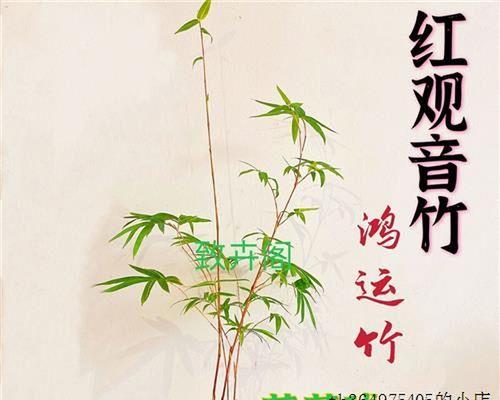 红观音竹
鸿运竹
致卉阁
tb364975405的小店